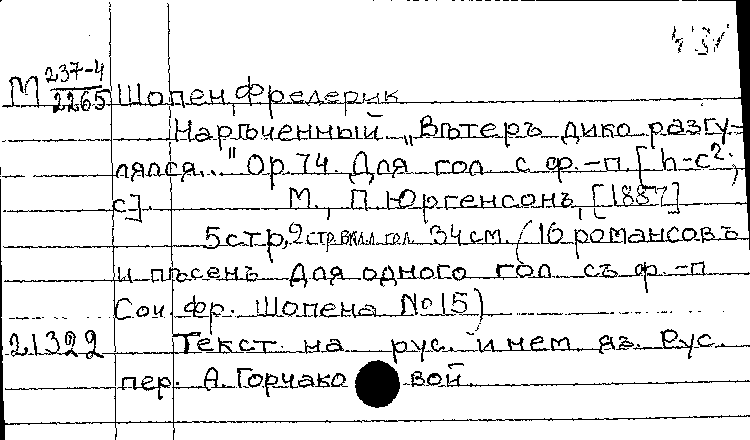 М 237-4/2265 Шопен, Фредерик
Нарѣченный „Вѣтеръ дико разгу-
лялся..." Op. 74. Для гол с ф.-п. [h-c²;
c].   М., П. Юргенсонъ, [1887]
5 стр, 2 стр вкл. гол. 34 см. (16 романсовъ
и пѣсенъ для одного гол съ ф.-п
Соч. Фр. Шопена №15)
21322 Текст на рус. и нем. яз. Рус.
пер. А. Горчаковой.